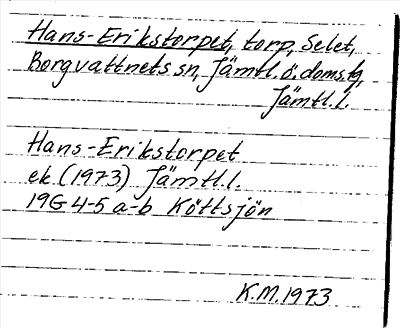 Hans-Erikstorpet, torp, Selet,
Borgvattnets sn, Jämtl. ö. doms.tg,
Jämtl. l.
Hans-Erikstorpet
ek (1973) Jämtl. l.
19G 4-5 a-b Köttsjön
K.M. 1973